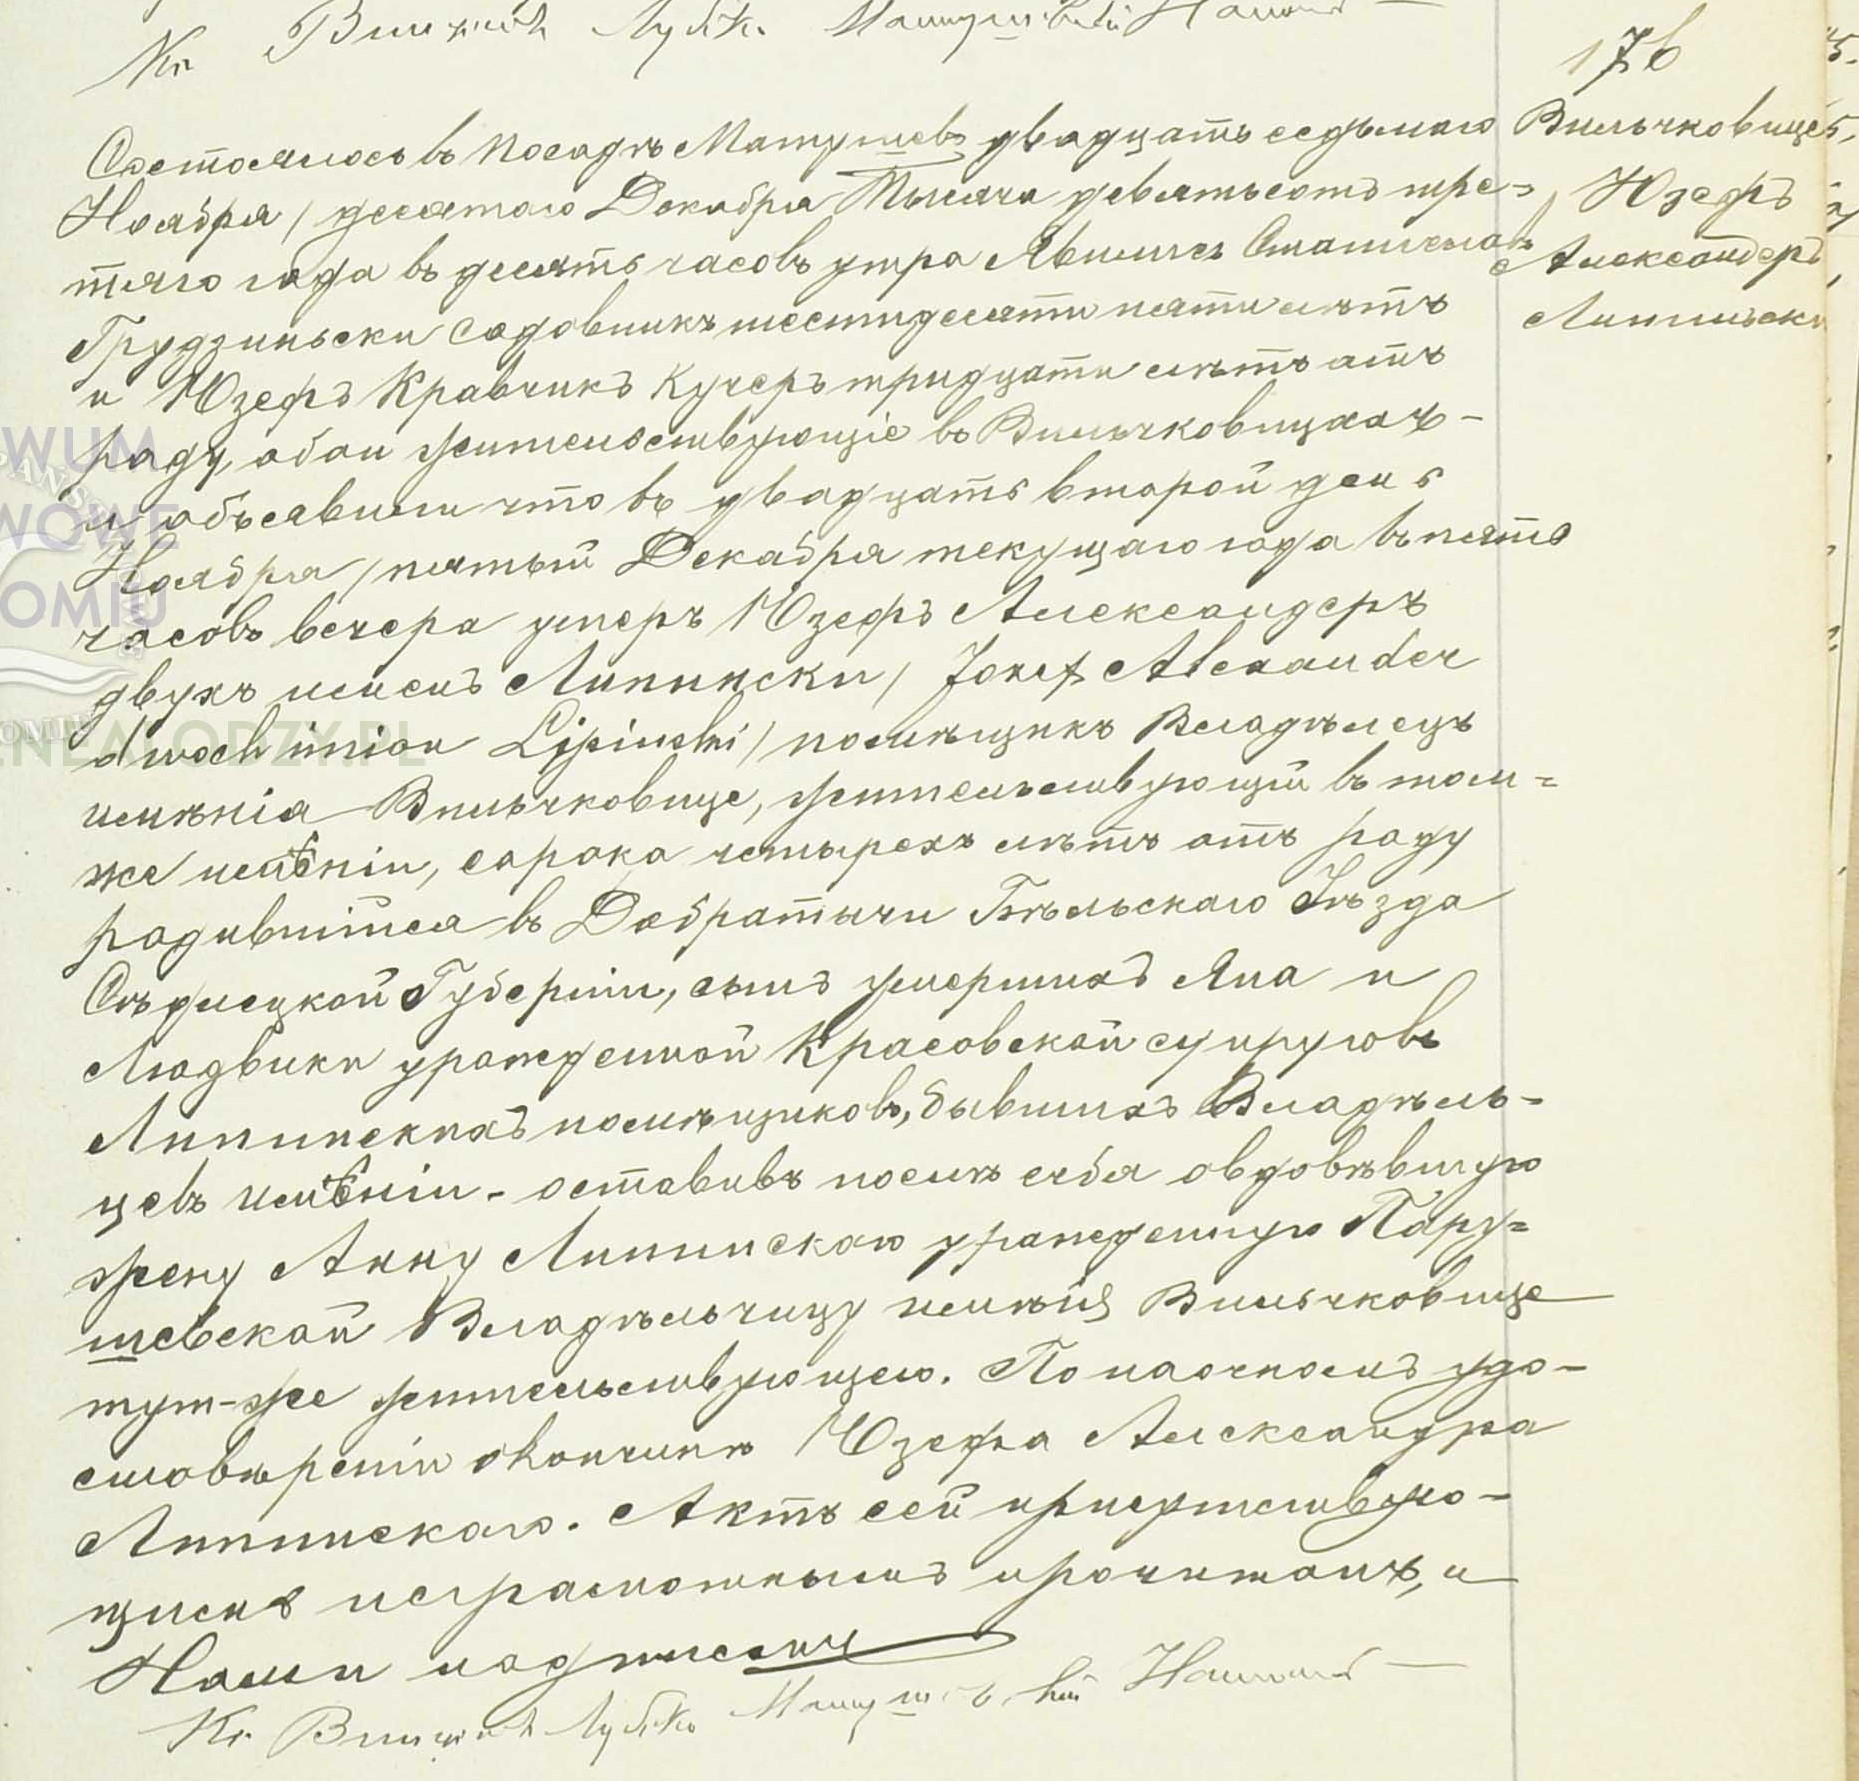 Кс Винцентъ Матушевскій Настоят
176
Вильчковице
Юзефъ
Александеръ
Липински
Состоялось въ посадѣ Матушевъ двадцать седьмаго
Ноября / десятаго Декабря Тысяча девятьсотъ тре-
тяго года въ десять часовъ утра Явились Станиславъ
Грудзиньски садовникъ шестидесяти пяти лѣтъ
и Юзефъ Кравчикъ Кучеръ тридцати лѣтъ отъ
роду, обои жительствующіе въ Вильчковицахъ -
и объявили что въ двадцать второй день
Ноября / пятый Декабря текущаго года въ пять
часовъ вечера умеръ Юзефъ Александеръ
двухъ именъ Липински / Jozef Alexander
dwoch imion Lipinski / помѣщикъ Владѣлецъ
имѣнія Вильчковице, жительствующій въ томъ =
же имѣніи, сорока четырехъ лѣтъ отъ роду
родившійся въ Добратычи Бѣльскаго Уѣзда
Сѣдлецкой Губерніи, сынъ умершихъ Яна и
Людвики урожденной Красовской супруговъ
Липинскихъ помѣщиковъ, бывшихъ Владѣль-
цевъ имѣніи - оставивъ послѣ себя овдовѣвшую
жену Анну Липинскою урожденную Пару=
шевской Владѣльчицу имѣнія Вильчковице
тут-же жительствующею. По наочномъ удо-
стовѣреніи окончинѣ Юзефа Александра
Липинскаго. Актъ сей присутствую-
щимъ неграмотнымъ прочитанъ, и
Нами подписанъ
Кс Винцентъ Матушевскій Настоят